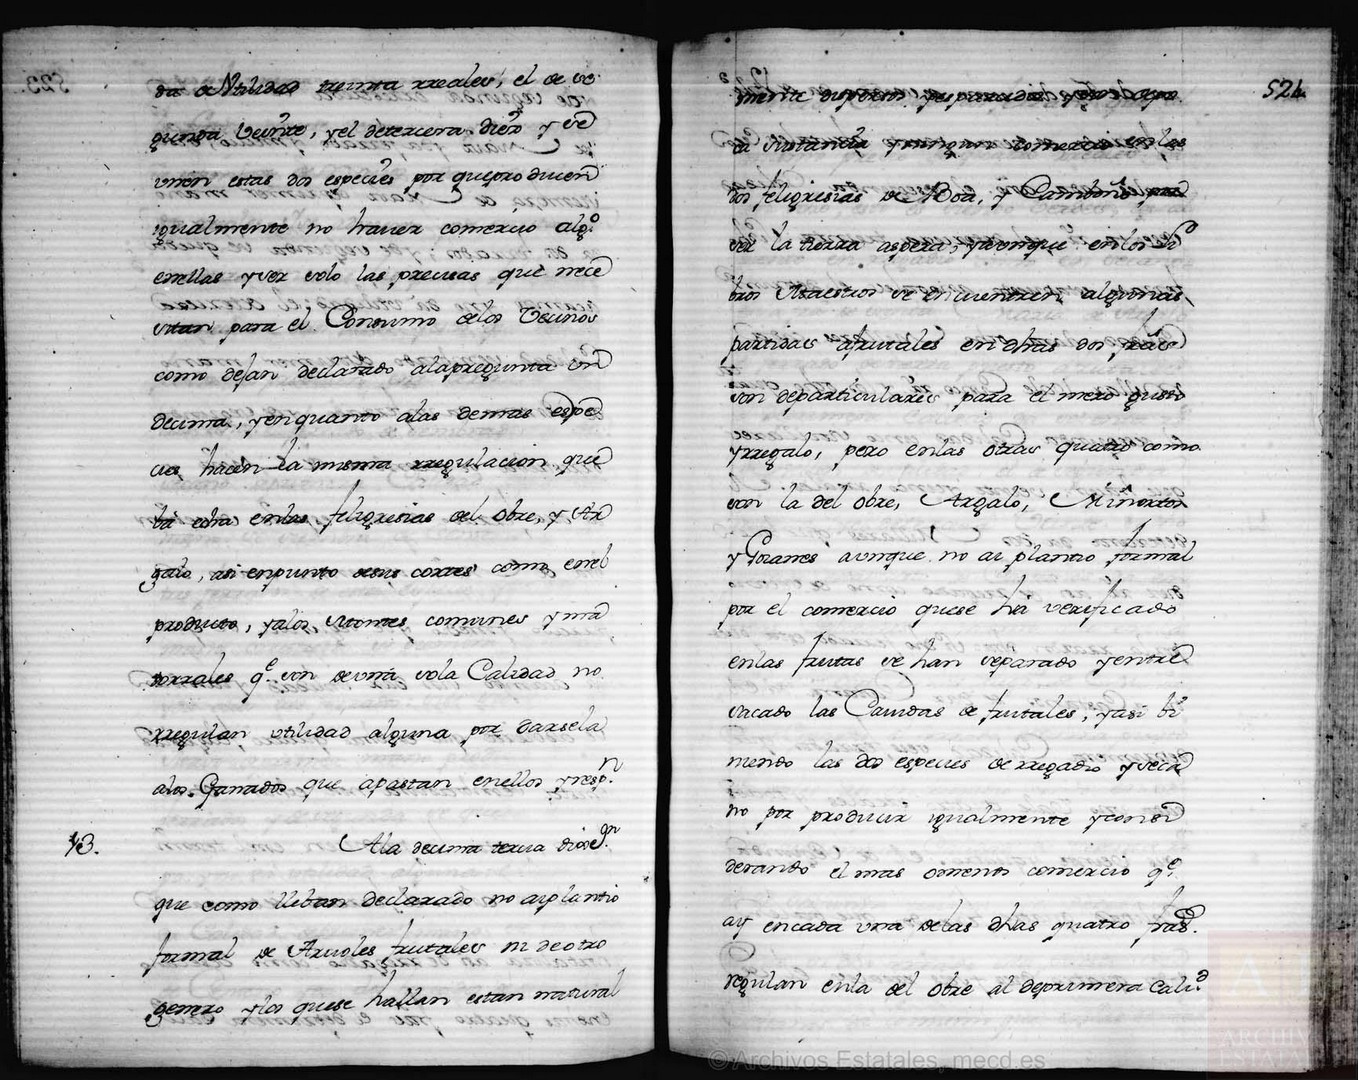 da de Utilidad treinta rreales, el de se
gunda Veinte, y el detercera diez y se
unen estas dos especies por queproducen
igualmente no haver comercio algº
enellas yser solo las precisas que nece
sitan para el Consumo delos Vecinos
como dejan declarado alapregunta un
decima, yenquanto alas demas espe
cies hacen la misma rregulacion que
bá echa enlas feligresias del Obre, y Ar
galo, asi enpunto desus cortes como enel
producto, yalos Montes comunes y ma
torrales q.e son deuna sola Calidad no
rregulan utilidad alguna por darsela
alos Ganados que apastan enellos yresp.n
13.
Ala decima tercia dixe.on
que como lleban declarado no ai plantio
formal de Arvoles frutales ni de otro
genero ylos quese hallan estan natural
524
mente dispersos
ta Sustancia yningun comercio enlas
dos feligresias de Boa, y Camboño por
ser la tierra aspera, yaunque enlos Li
bros Maestros se encuentren algunas
partidas afrutales en dhas dos frâs
son departiculares para el mero gusto
yrregalo, pero enlas otras quatro como
son la del Obre, Argalo, Miñortos
y Goianes aunque no ai plantio formal
por el comercio quese há verificado
enlas frutas se han separado yentre
sacado las Cavidas de frutales, yasi bi
niendo las dos especies de rregadio yseca
no por producir igualmente yconsi
derando el mas omenos comercio q.e
ay encada una delas dhas quatro frâs.
regulan enla del Obre al deprimera Calid.d
© Archivos Estatales, mecd.es
ARCHIV
ESTATA